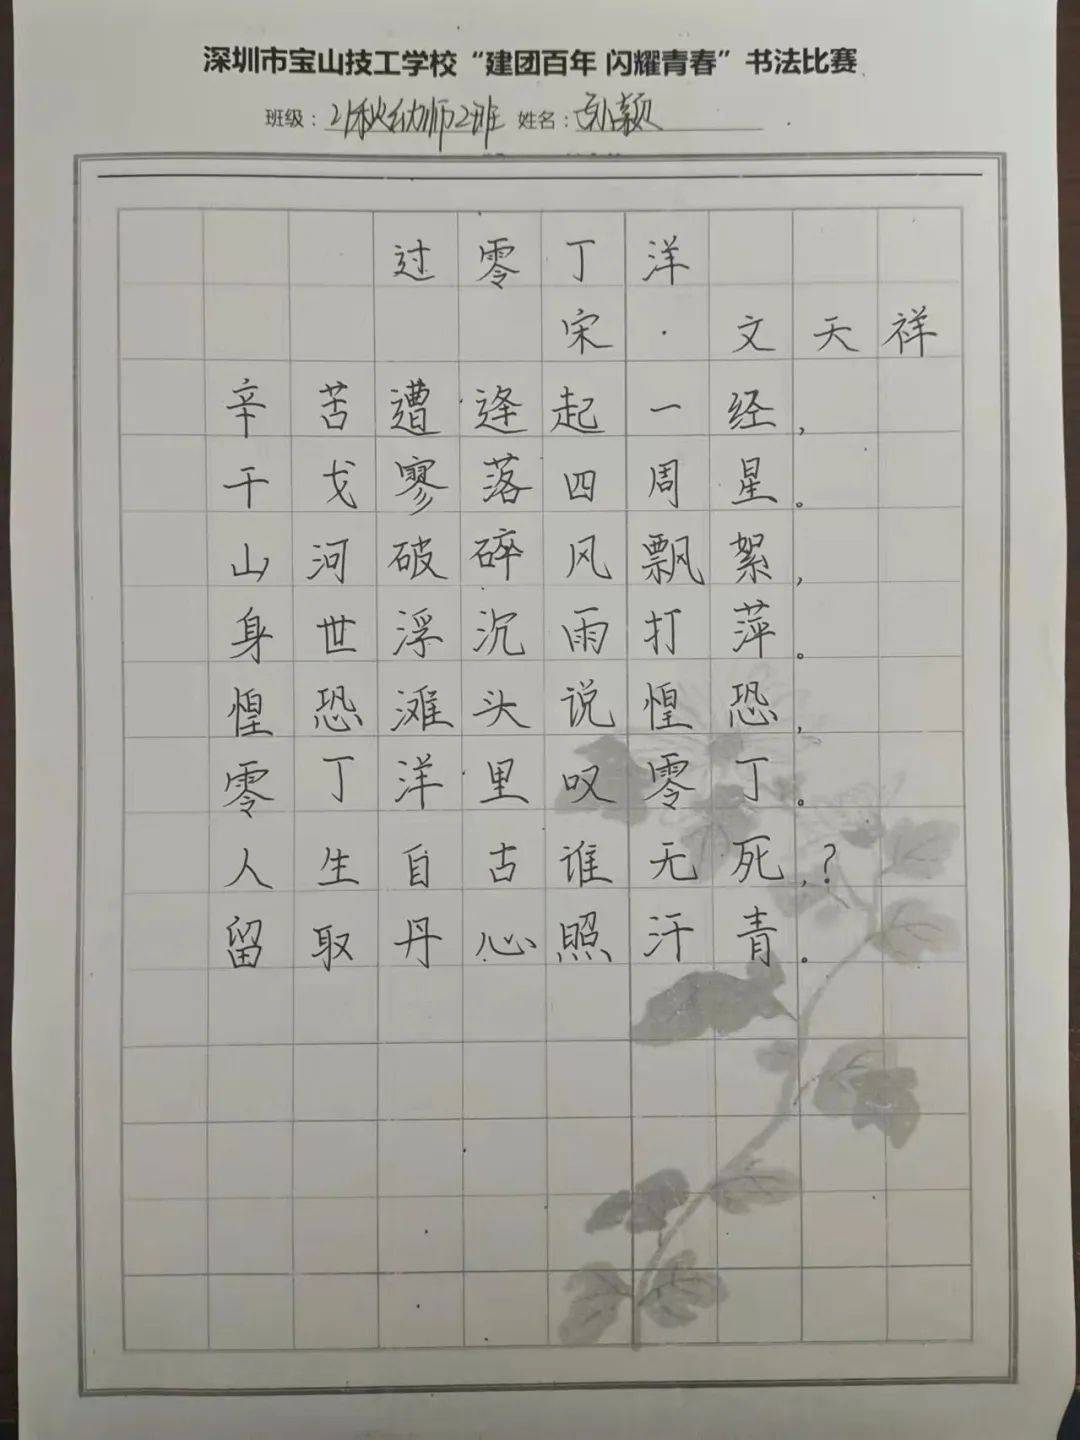 深圳市宝山技工学校“建团百年 闪耀青春”书法比赛
班级：21秋幼师2班 姓名：颖
过零丁洋
宋·文天祥
辛苦遭逢起一经，
干戈寥落四周星。
山河破碎风飘絮，
身世浮沉雨打萍。
惶恐滩头说惶恐，
零丁洋里叹零丁。
人生自古谁无死，？
留取丹心照汗青。